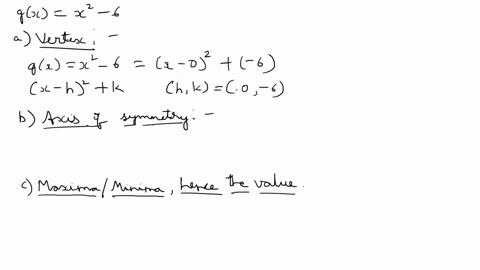 g(x) = x² - 6
a) Vertex : -
g(x) = x² - 6 = (x - 0)² + (-6)
(x - h)² + k (h, k) = (0, -6)
b) Axis of symmetry : -
c) Maxima / Minima, hence the value.